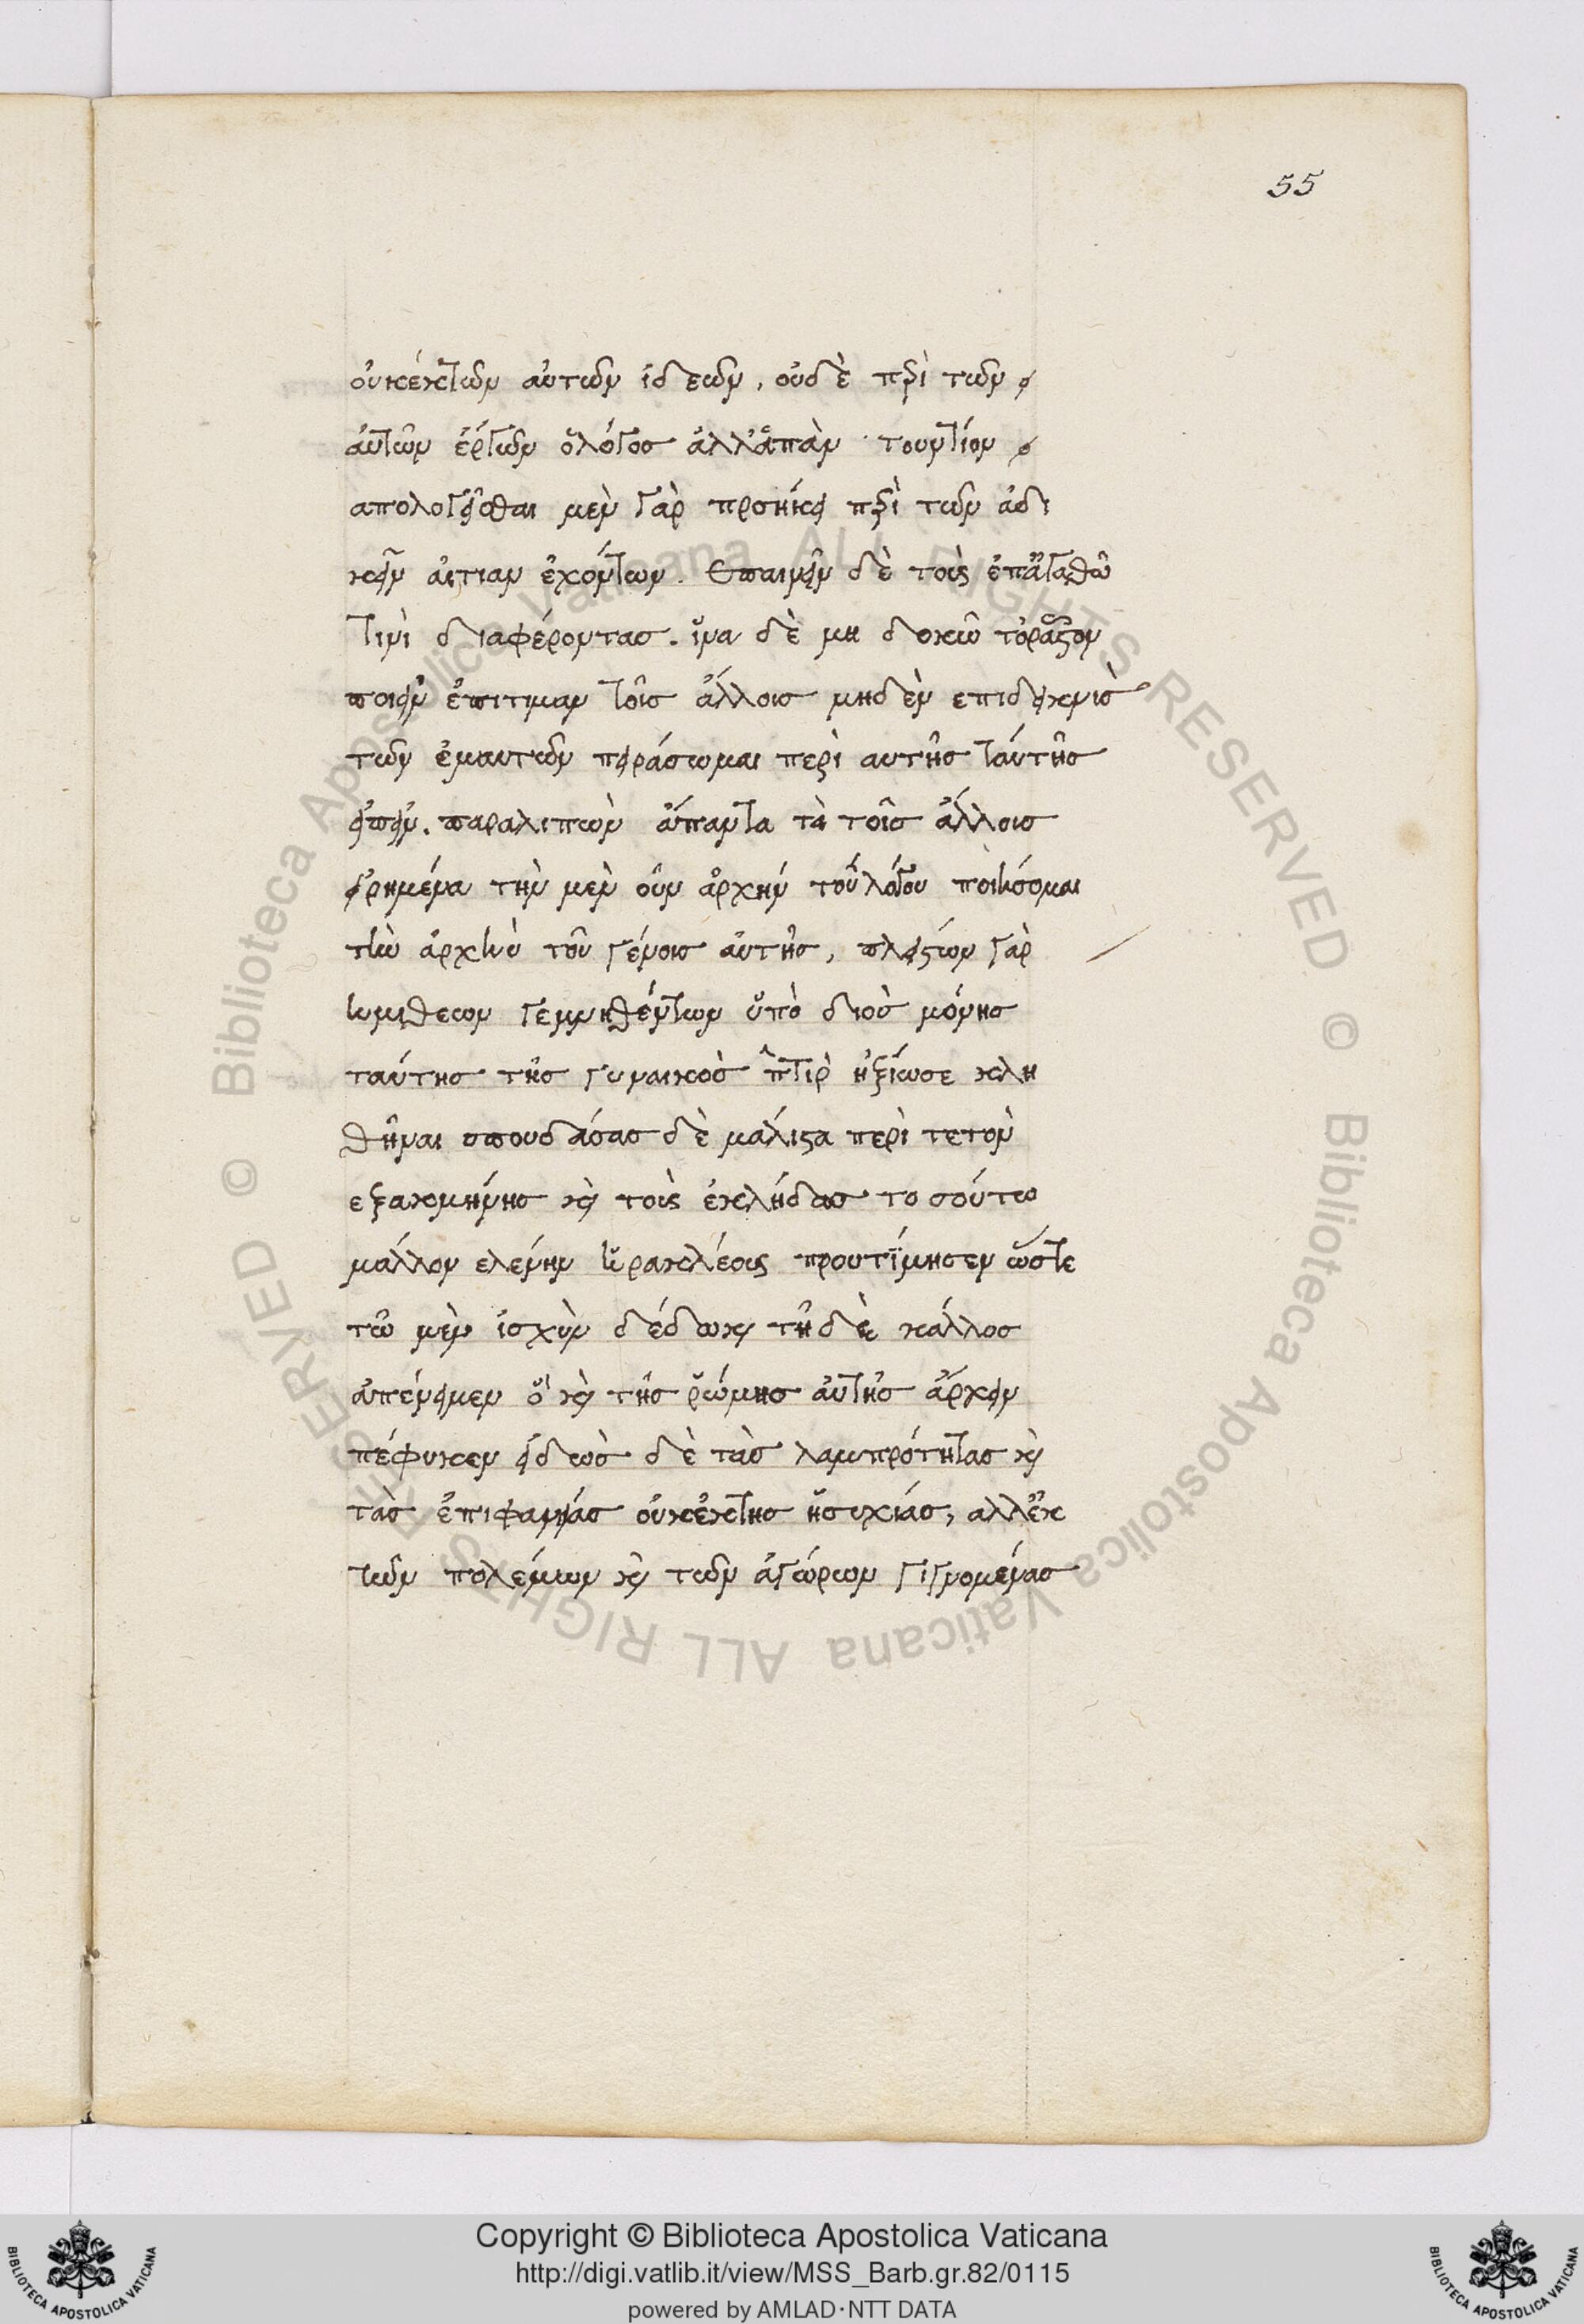 55
οὐκἐκτῶν αὐτῶν ἰδεῶν, οὐδὲ περὶ τῶν
αὐτῶν ἔργων ὁ λόγος ἀλλ' ἅπαν τουντίον
απολογεῖσθαι μὲν γὰρ προσήκει περὶ τῶν ἀδι
κεῖν ἀιτιαν ἐχόντων. Επαινεῖν δὲ τοὺς ἐπ' ἀγαθῶ
τινὶ διαφέροντασ. ἵνα δὲ μη δοκῶ τὸ ρᾶστον
ποιεῖν ἐπιτιμαν τοῖς ἄλλοισ μηδὲν επιδεικνὺσ
τῶν ἐμαυτῶν πειράσωμαι περὶ αυτῆσ ταύτησ
εἰπεῖν. παραλιπὼν ἅπαντα τὰ τοῖσ ἄλλοισ
εἰρημένα τὴν μὲν οὖν ἀρχήν τοῦ λόγου ποιήσομαι
τὴν ἀρχὴν τοῦ γένους αὐτῆσ, πλείστων γὰρ
ημιθεων γεννηθέντων ὑπὸ διοὸσ μόνησ
ταύτησ τῆσ γυναικὸσ πατὴρ ἠξίωσε κλη
θῆναι σπουδάσασ δὲ μάλιστα περὶ τετον
εξ αλκμήνησ καὶ τοὺς ἐκ λήδασ το σούτω
μάλλον ελένην ἡρακλέους προυτίμησεν ὥστε
τῶ μὲν ἰσχὺν δέδωκε τῆ δὲ κάλλοσ
ἀπένειμεν ὃ καὶ τῆσ ῥώμησ ἀυτῆσ ἄρχειν
πέφυκεν εἰδὼσ δὲ τὰσ λαμπρότητασ καὶ
τὰσ ἐπιφανείασ οὐκ ἐκ τησ ἡσυχίασ, αλλ' ἐκ
τῶν πολέμων καὶ τῶν ἀγώνων γιγνομένασ
Copyright © Biblioteca Apostolica Vaticana
http://digi.vatlib.it/view/MSS_Barb.gr.82/0115
powered by AMLAD·NTT DATA